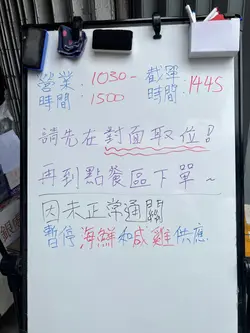 營業時間：1030-1500
截單：1445
請先在對面取位！
再到點餐區下單～
因未正常通關
暫停海鮮和咸雞供應